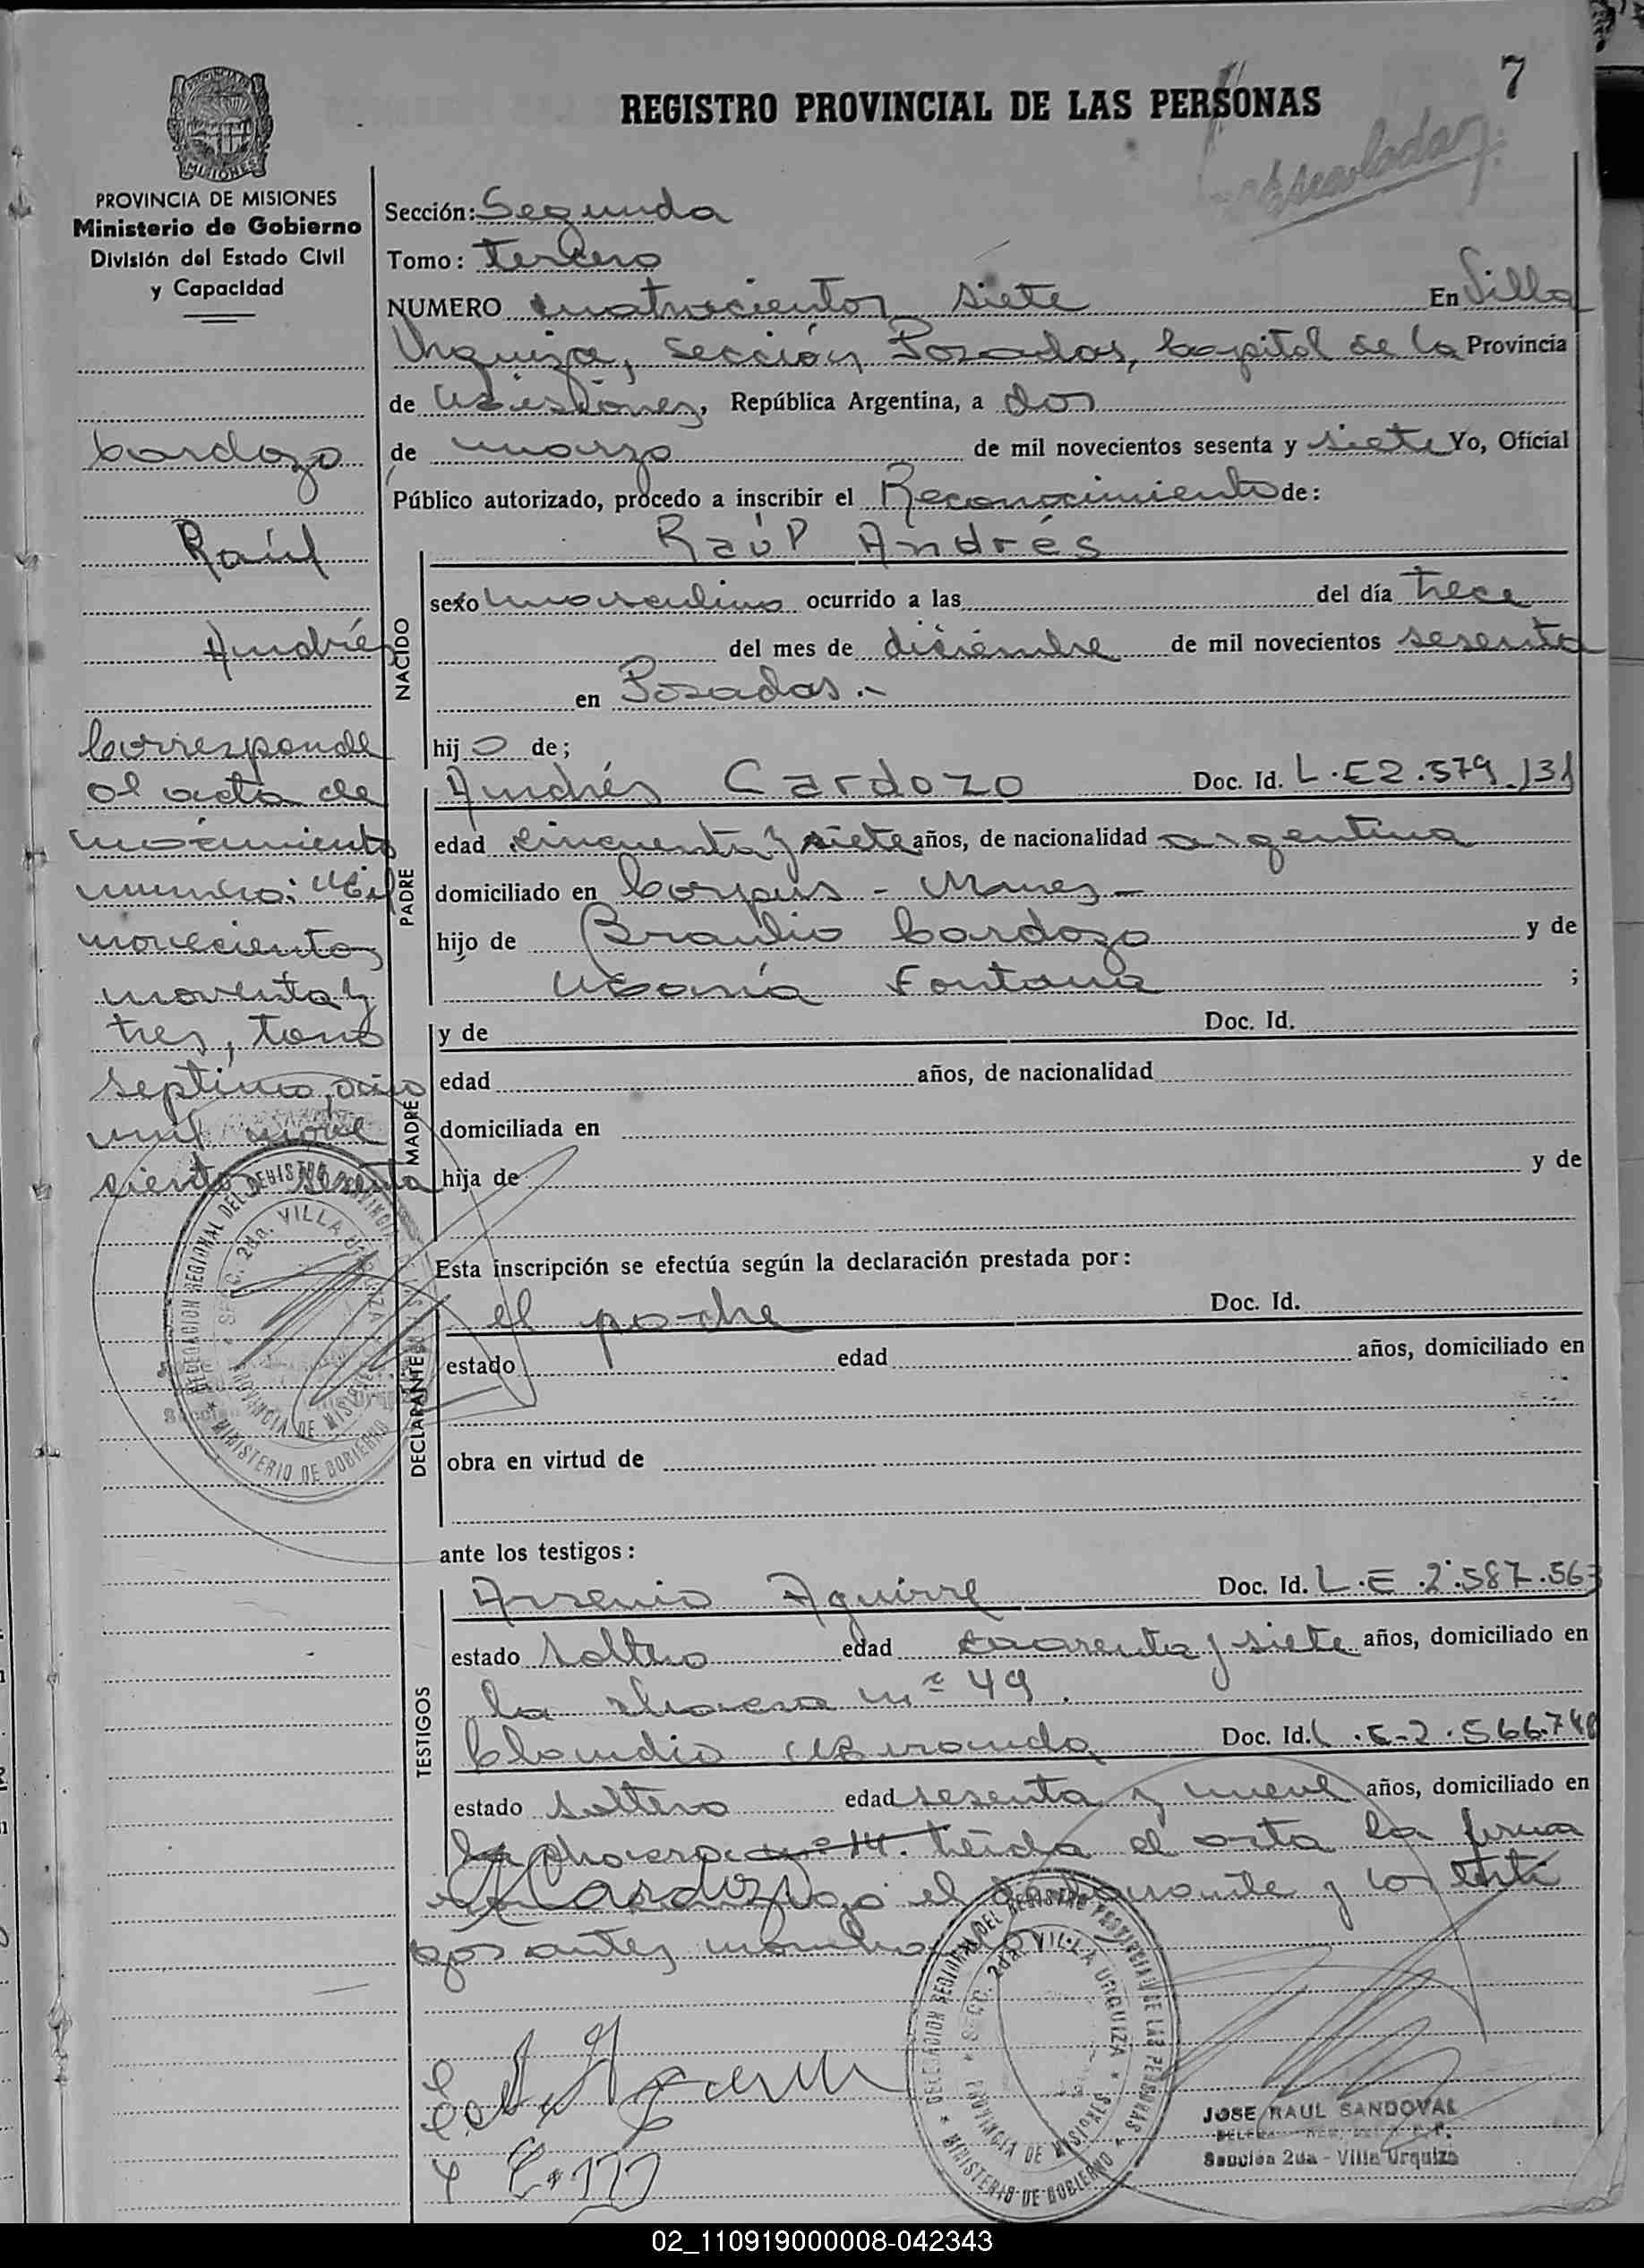 7
REGISTRO PROVINCIAL DE LAS PERSONAS
MISIONES
PROVINCIA DE MISIONES
Ministerio de Gobierno
División del Estado Civil
y Capacidad
Cardozo
Raúl
Andrés
Corresponde
al acta de
nacimiento
numero: Mil
novecientos
noventa y
tres, tomo
septimo, año
mil nove
cientos sesenta
Sección: Segunda
Tomo: tercero
NUMERO cuatrocientos siete En Villa
Urquiza, sección Posadas, Capital de la Provincia
de Misiones, República Argentina, a dos
de marzo de mil novecientos sesenta y siete Yo, Oficial
Público autorizado, procedo a inscribir el Reconocimiento de:
Raúl Andrés
NACIDO
sexo masculino ocurrido a las del día trece
del mes de diciembre de mil novecientos sesenta
en Posadas.-
hijo de;
PADRE
Andrés Cardozo Doc. Id. L.E 2.579.131
edad cincuenta y siete años, de nacionalidad argentina
domiciliado en Corpus - Mnes -
hijo de Braulio Cardozo y de
María Fontana ;
MADRE
y de Doc. Id.
edad años, de nacionalidad
domiciliada en
hija de y de
Esta inscripción se efectúa según la declaración prestada por:
DECLARANTE
el padre Doc. Id.
estado edad años, domiciliado en
obra en virtud de
ante los testigos:
TESTIGOS
Arsenio Aguirre Doc. Id. L.E.2.587.563
estado soltero edad cuarenta y siete años, domiciliado en
la chacra nº 49.
Claudio Miranda Doc. Id. L.E-2.566.740
estado soltero edad sesenta y nueve años, domiciliado en
la chacra nº 14. leída el acta la firma
el declarante y los testi
gos antes
ACardozo
DELEGACION REGIONAL DEL REGISTRO PROVINCIAL DE LAS PERSONAS
SECC. 2da. VILLA URQUIZA
PROVINCIA DE MISIONES
MINISTERIO DE GOBIERNO
DELEGACION REGIONAL DEL REGISTRO PROVINCIAL DE LAS PERSONAS
SECC. 2da. VILLA URQUIZA
PROVINCIA DE MISIONES
MINISTERIO DE GOBIERNO
JOSE RAUL SANDOVAL
Sección 2da - Villa Urquiza
02_110919000008-042343